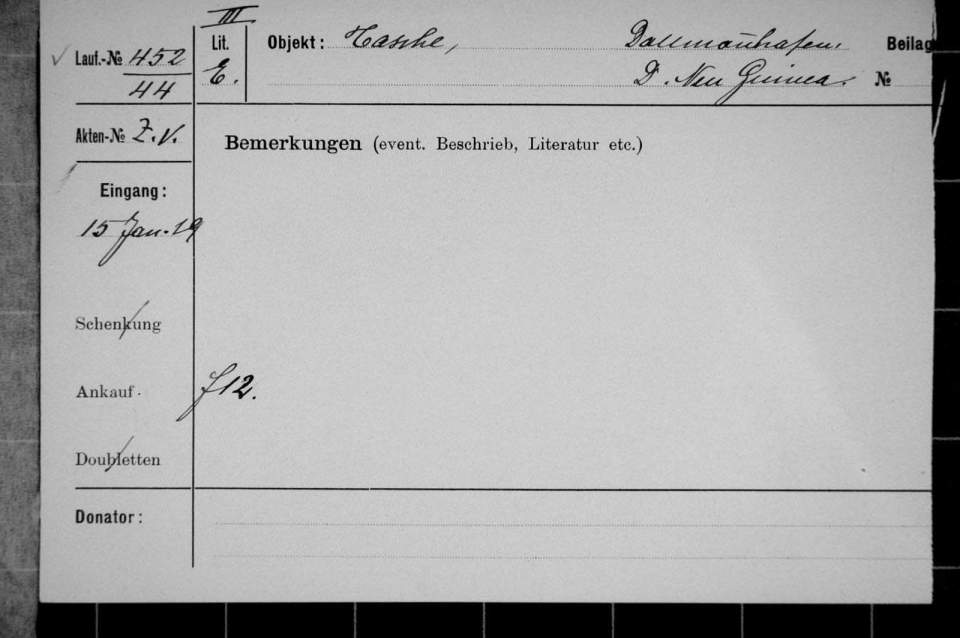 III
Lauf.-№ 452
44
Lit.
E.
Objekt: Tasche, Dallmannhafen,
D. Neu Guinea.
Beilag
№
Akten-№ Z.V.
Bemerkungen (event. Beschrieb, Literatur etc.)
Eingang:
15 Jan. 19
Schenkung
Ankauf. f 12.
Doubletten
Donator: